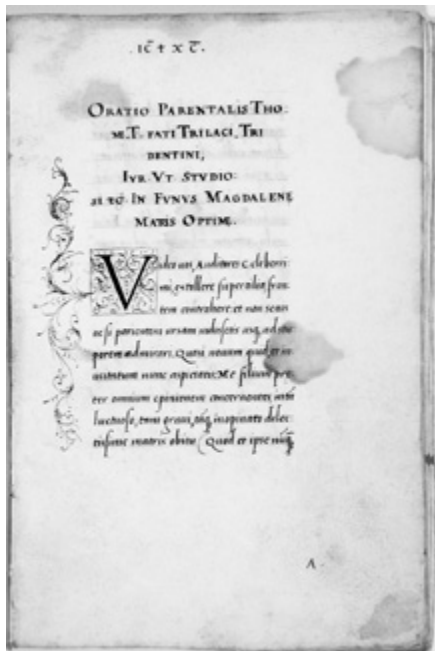 IC̄ ✝ XC̄.
ORATIO PARENTALIS THO:
MȨ. T. FATI TRILACI, TRI
DENTINI,
IVR. VT. STVDIO:
SI &c̄. IN FVNVS MAGDALENȨ
MATRIS OPTIMȨ.
Video uos, Auditores celeberri
mi, extollere supercilia, fron
tem contrahere: et non secus
ac si portentum
partem admirari. Quasi nouum quid, et in
auditum nunc aspiciatis: Me filium prȩ
ter omnium opinionem
luctuoso, tam graui, inopinato dilec
tissimȩ matris obitu (Quod et ipse
A